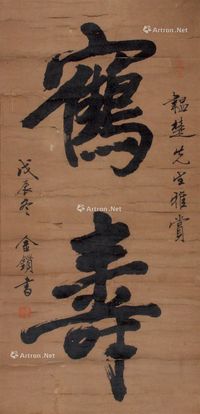 鶴壽
韞楚先生雅賞
戊辰冬 金鎖書
Artron.Net
Artron.Net
Artron.Net
Artron.Net